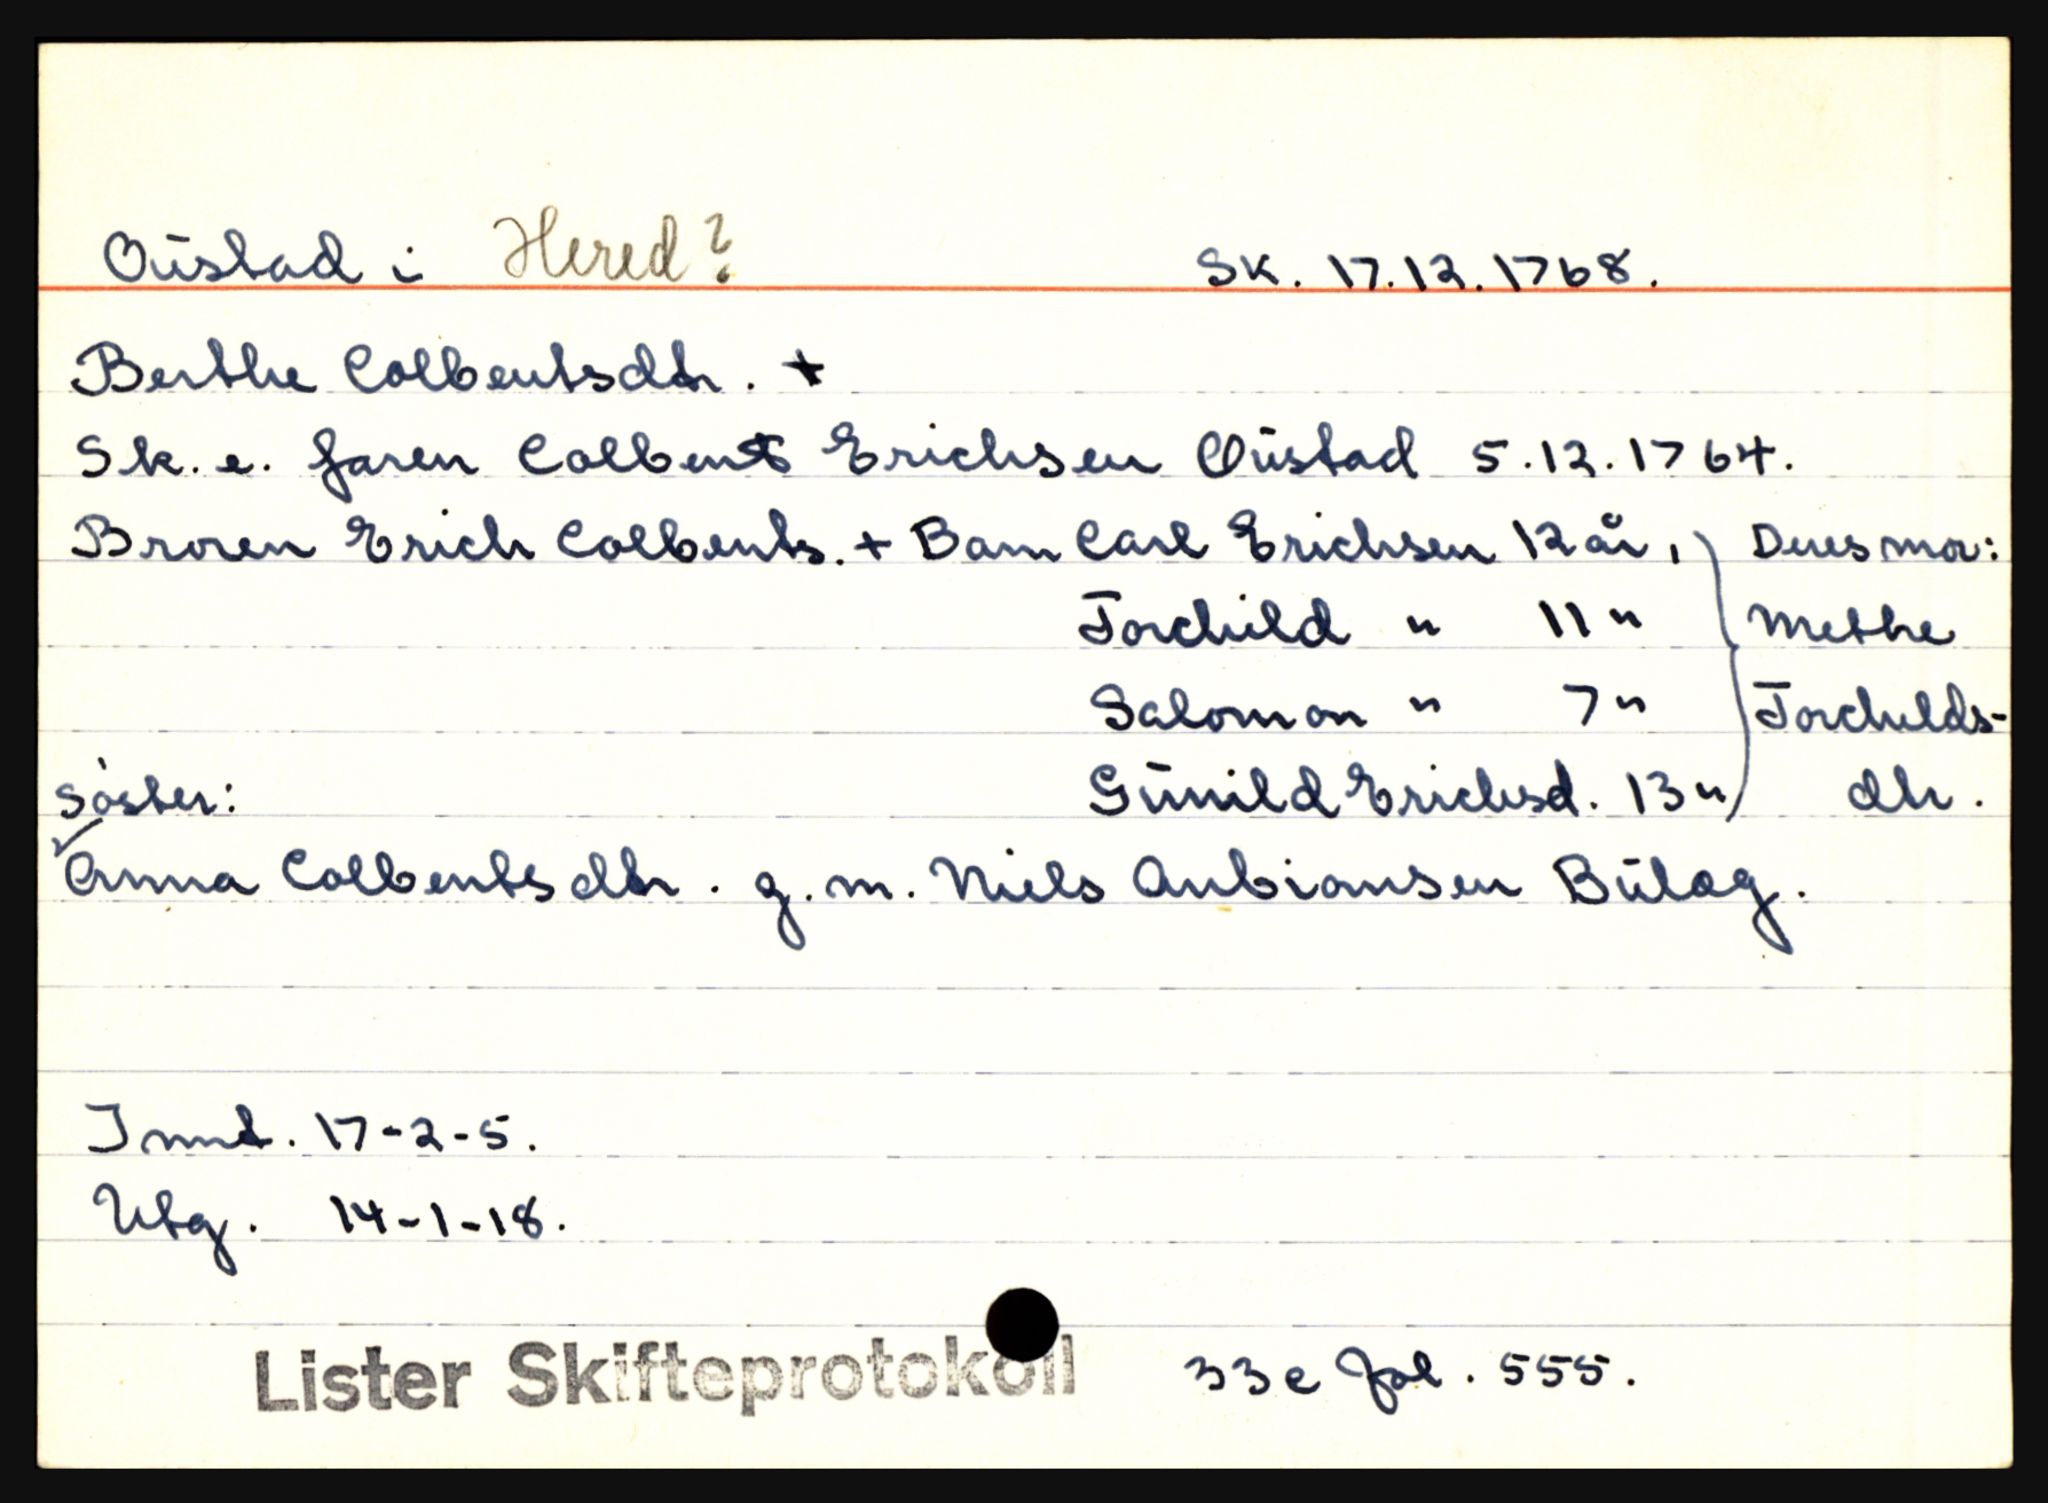 Oustad i Hered? Sk. 17.12.1768.
Berthe Colbentsdtr. +
Sk. e. faren Colbent Erichsen Oustad 5.12.1764.
Broren Erich Colbents. + Barn Carl Erichsen 12 år, Deres mor:
Torchild " 11 " Methe
Salomon " 7 " Torchilds-
søster: Gunild Erichsd. 13 " dtr.
Anna Colbentsdtr. g. m. Niels Anbiornsen Bulæg.
Innt. 17-2-5.
Utg. 14-1-18.
Lister Skifteprotokoll 33 c fol. 555.